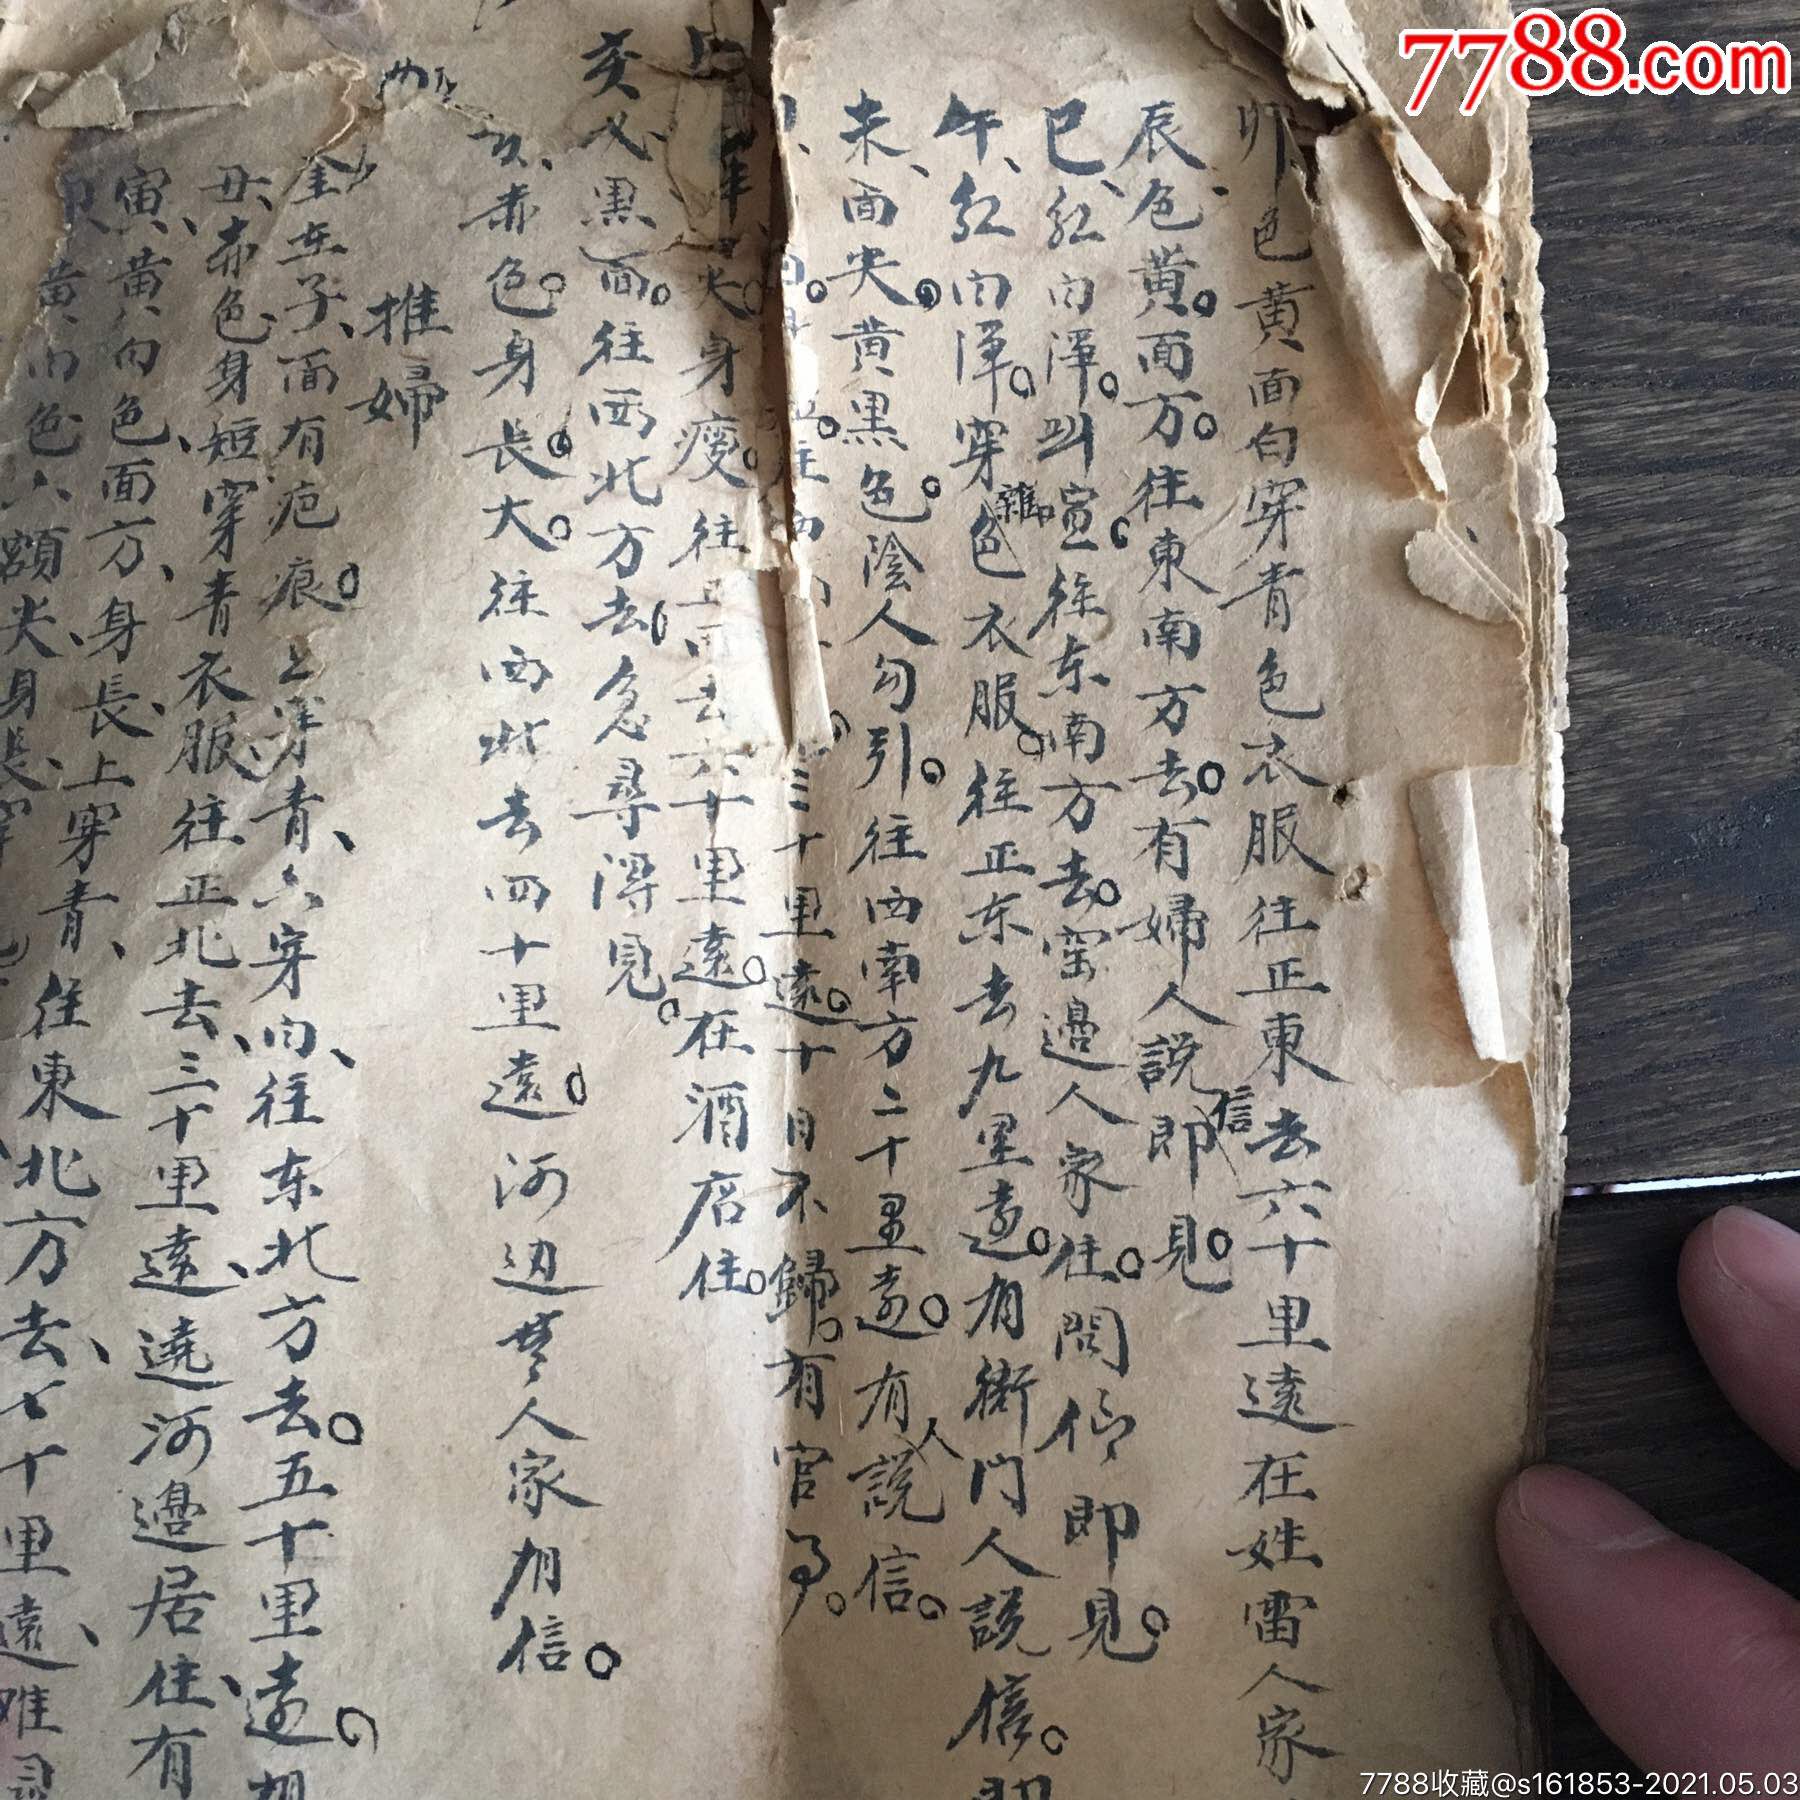 7788.com
卯色黄面白穿青色衣服往正東去六十里遠在姓雷人家
辰色黄面方往東南方去有婦人説信即見
巳红白澤叫喧往东南方去窑邊人家住問仰即見
午红白澤穿雜色衣服往正东去九里遠有衙门人説信即
未面尖黄黑色陰人勾引往西南方二十里遠有人説信
三十里遠十日不歸有官事
尖身瘦往去六十里遠在酒店住
黑面往西北方去急尋得見
亥赤色身長大往西北去四十里遠河边人家有信
推婦
金在子面有疤痕上穿青六穿白往东北方去五十里遠
丑赤色身短穿青衣服往正北去三十里遠遶河邊居住有
寅黄白色面方身長上穿青往東北方去七十里遠难
黄白色六額尖身長
7788收藏@s161853-2021.05.03